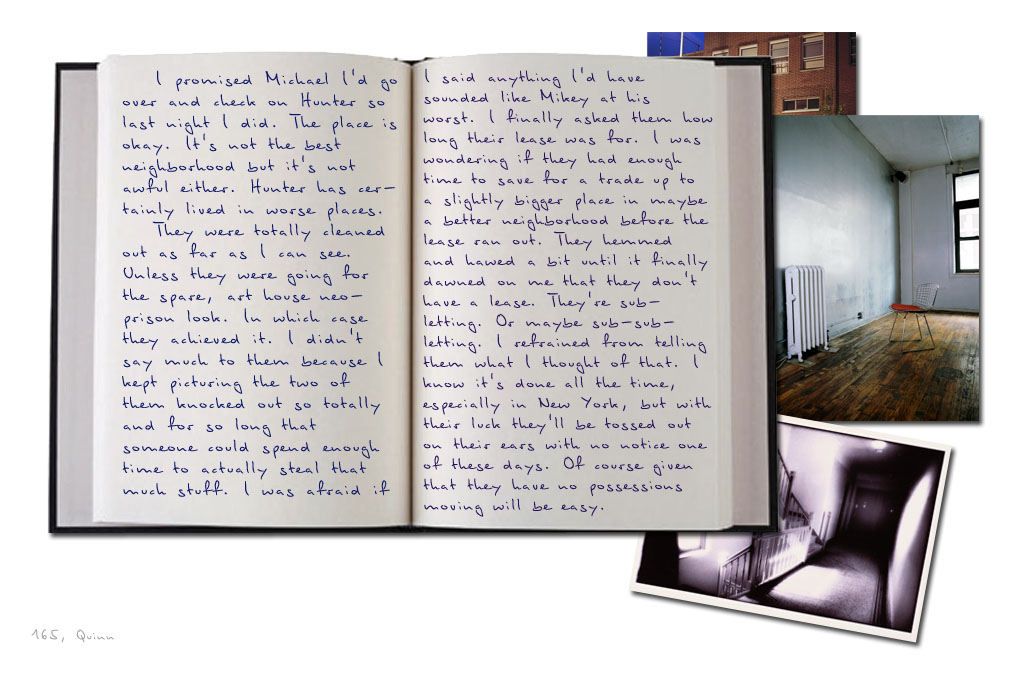 I promised Michael I'd go
over and check on Hunter so
last night I did. The place is
okay. It's not the best
neighborhood but it's not
awful either. Hunter has cer-
tainly lived in worse places.
They were totally cleaned
out as far as I can see.
Unless they were going for
the spare, art house neo-
prison look. In which case
they achieved it. I didn't
say much to them because I
kept picturing the two of
them knocked out so totally
and for so long that
someone could spend enough
time to actually steal that
much stuff. I was afraid if
I said anything I'd have
sounded like Mikey at his
worst. I finally asked them how
long their lease was for. I was
wondering if they had enough
time to save for a trade up to
a slightly bigger place in maybe
a better neighborhood before the
lease ran out. They hemmed
and hawed a bit until it finally
dawned on me that they don't
have a lease. They're sub-
letting. Or maybe sub-sub-
letting. I refrained from telling
them what I thought of that. I
know it's done all the time,
especially in New York, but with
their luck they'll be tossed out
on their ears with no notice one
of these days. Of course given
that they have no possessions
moving will be easy.
165, Quinn